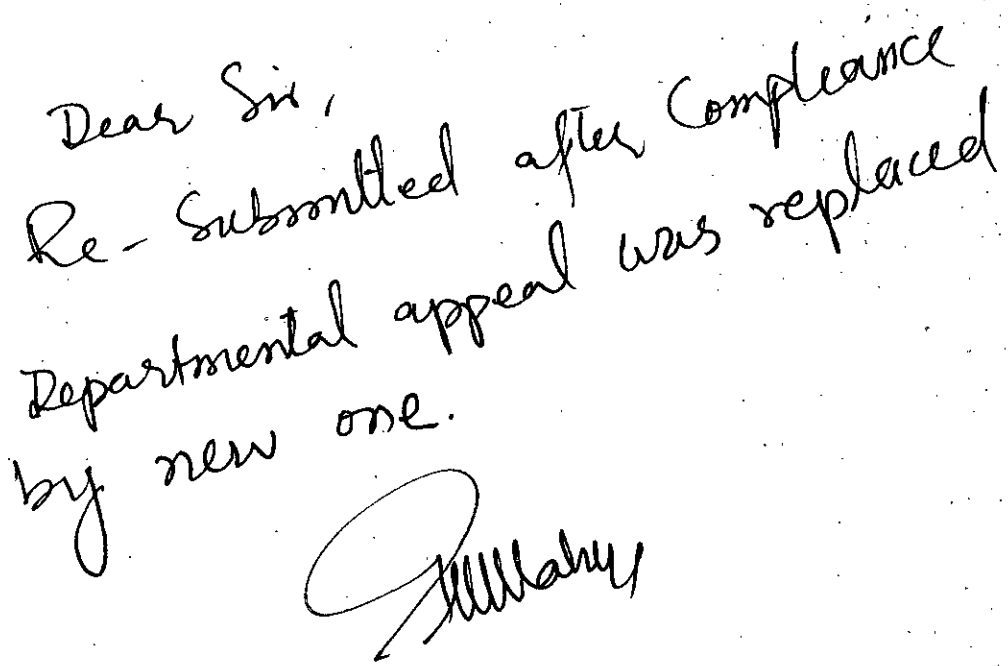 Dear Sir,
Re-Submitted after Compliance
Departmental appeal was replaced
by new one.